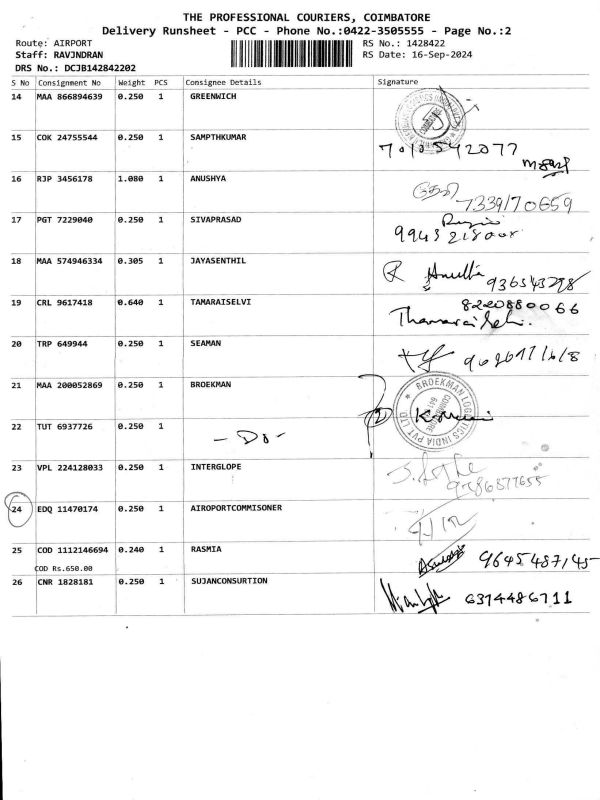 THE PROFESSIONAL COURIERS, COIMBATORE
Delivery Runsheet - PCC - Phone No.:0422-3505555 - Page No.:2
Route: AIRPORT RS No.: 1428422
Staff: RAVJNDRAN RS Date: 16-Sep-2024
DRS No.: DCJB142842202
S No Consignment No Weight PCS Consignee Details Signature
14 MAA 866894639 0.250 1 GREENWICH
15 COK 24755544 0.250 1 SAMPTHKUMAR
7010542077
16 RJP 3456178 1.080 1 ANUSHYA
7339170659
17 PGT 7229040 0.250 1 SIVAPRASAD
18 MAA 574946334 0.305 1 JAYASENTHIL
19 CRL 9617418 0.640 1 TAMARAISELVI 8220880066
20 TRP 649944 0.250 1 SEAMAN
21 MAA 200052869 0.250 1 BROEKMAN
BROEKMAN LOGISTICS INDIA PVT LTD
22 TUT 6937726 0.250 1 - Do -
23 VPL 224128033 0.250 1 INTERGLOPE
24 EDQ 11470174 0.250 1 AIROPORTCOMMISONER
25 COD 1112146694 0.240 1 RASMIA
9645487145
COD Rs.650.00
26 CNR 1828181 0.250 1 SUJANCONSURTION
6374486711